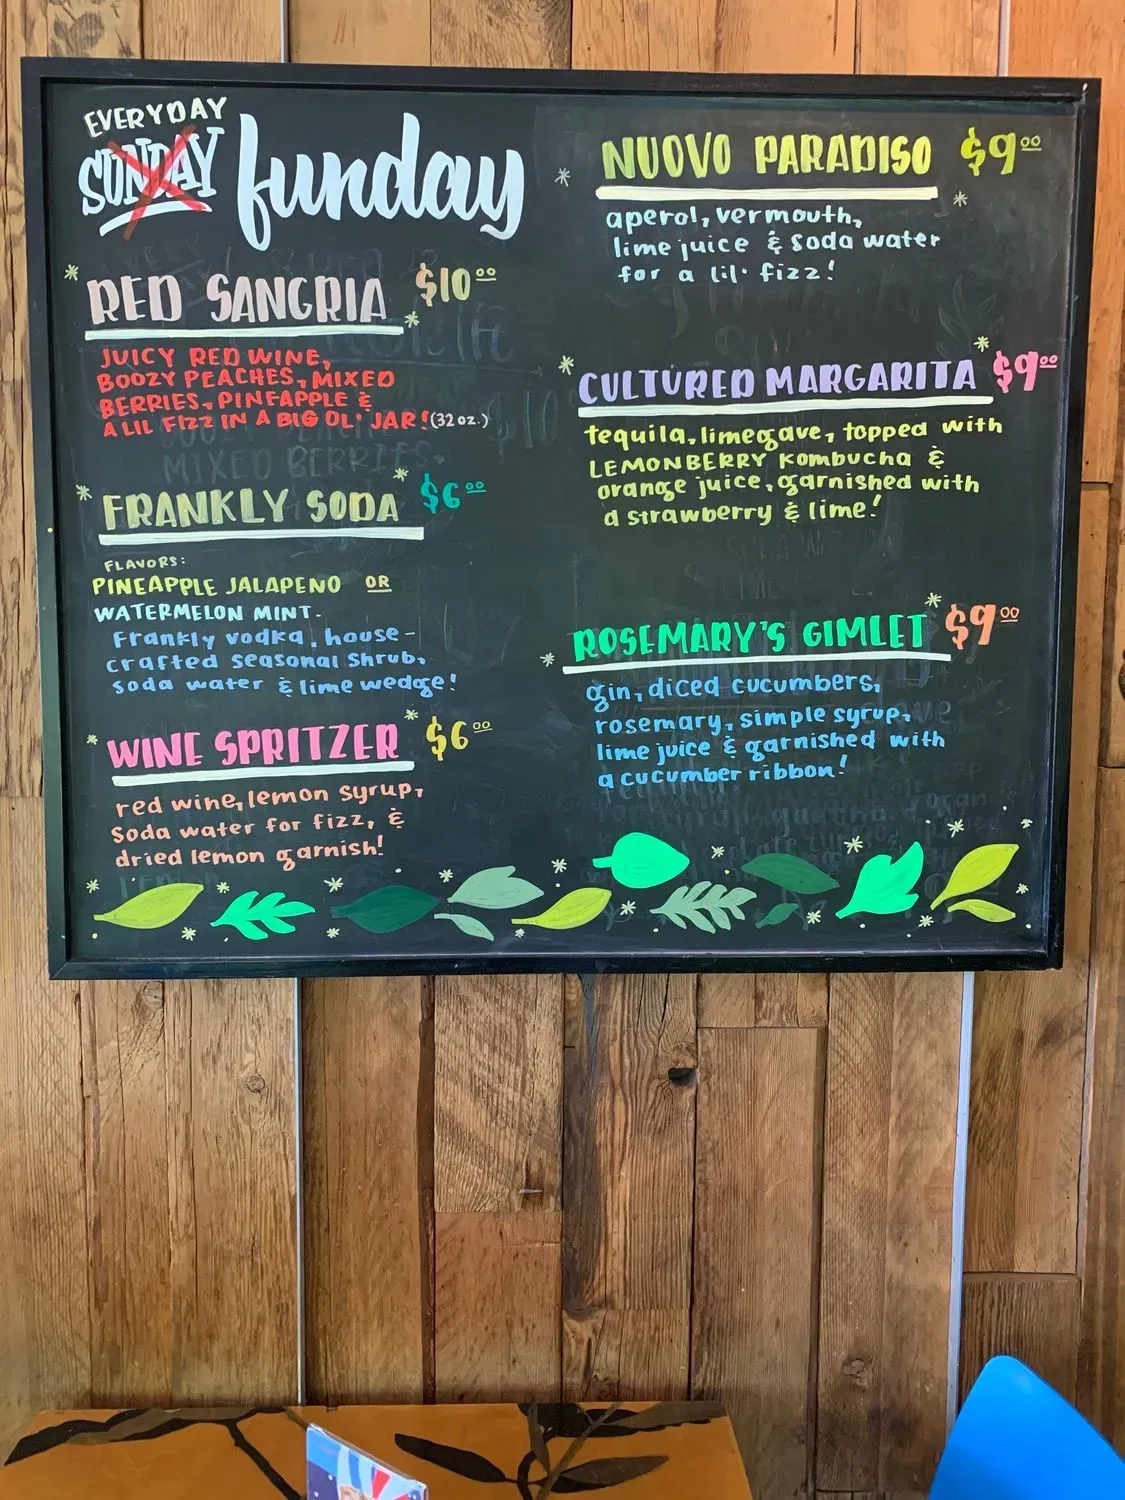 EVERYDAY
SUNDAY funday
RED SANGRIA $10.00
JUICY RED WINE,
BOOZY PEACHES, MIXED
BERRIES, PINEAPPLE &
A LIL FIZZ IN A BIG OL' JAR! (32 oz.)
FRANKLY SODA $6.00
FLAVORS:
PINEAPPLE JALAPENO OR
WATERMELON MINT.
Frankly vodka, house-
crafted seasonal shrub,
soda water & lime wedge!
WINE SPRITZER $6.00
red wine, lemon syrup,
soda water for fizz, &
dried lemon garnish!
NUOVO PARADISO $9.00
aperol, vermouth,
lime juice & soda water
for a lil' fizz!
CULTURED MARGARITA $9.00
tequila, limegave, topped with
LEMONBERRY kombucha &
orange juice, garnished with
a strawberry & lime!
ROSEMARY'S GIMLET $9.00
gin, diced cucumbers,
rosemary, simple syrup,
lime juice & garnished with
a cucumber ribbon!